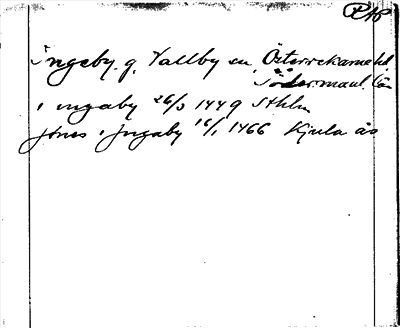 PAP
Ingeby g. Vallby sn Österrekarne hd.
Södermanl. län
i ingaby 26/3 1449 Sthlm
jönes i Jngaby 16/1 1466 Kjula ås